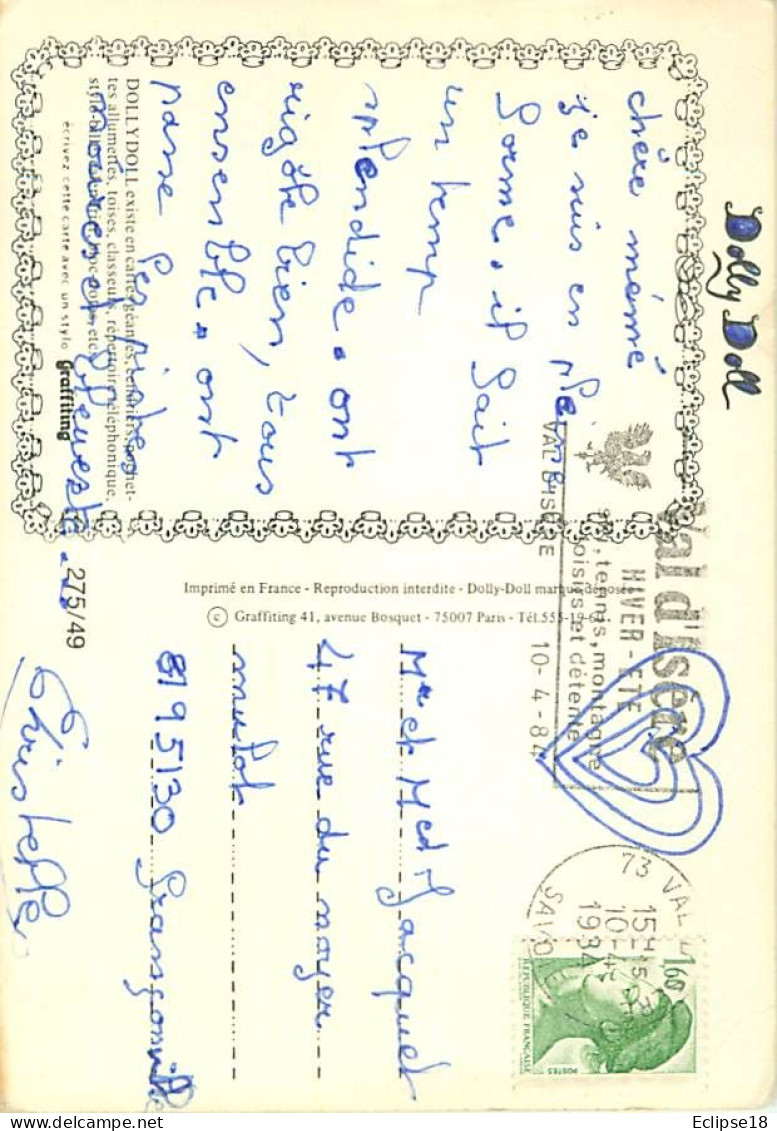 Dolly Doll
chère mémé
je suis en pleine
forme. il fait
un temp
splendide. ont
rigole bien, tous
ensemble. ont
passe les pistes
noires et
Christelle
DOLLY DOLL existe en cartes géantes, cendriers, pochet-
tes allumettes, toises, classeurs, répertoire téléphonique,
écrivez cette carte avec un stylo Graffiting
275/49
Imprimé en France - Reproduction interdite - Dolly-Doll marque déposée
© Graffiting 41, avenue Bosquet - 75007 Paris - Tél.
Val d'Isère
HIVER - ETE
tennis, montagne
loisirs et détente
VAL D'ISERE 10-4-84
73 VAL
15H15
10-4
1984
SAVOIE
1,60
REPUBLIQUE FRANÇAISE
POSTES
Mr et Jacquet
47 rue du noyer
mulot
95130 Franconville
Eclipse18